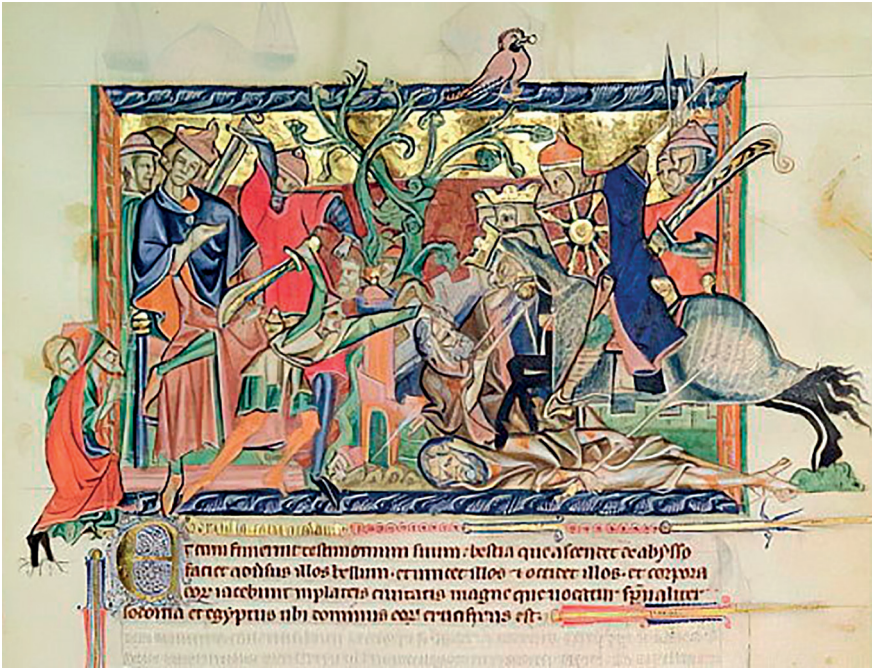 Et cum finierint testimonium suum : bestia que ascendet de abysso
faciet adusus illos bellum . et uincet illos ⁊ occidet illos . et corpora
eoꝝ iacebunt in plateis ciuitatis magne que uocatur sp̄ualiter
sodoma et egyptus ubi dominus eoꝝ crucifixus est .